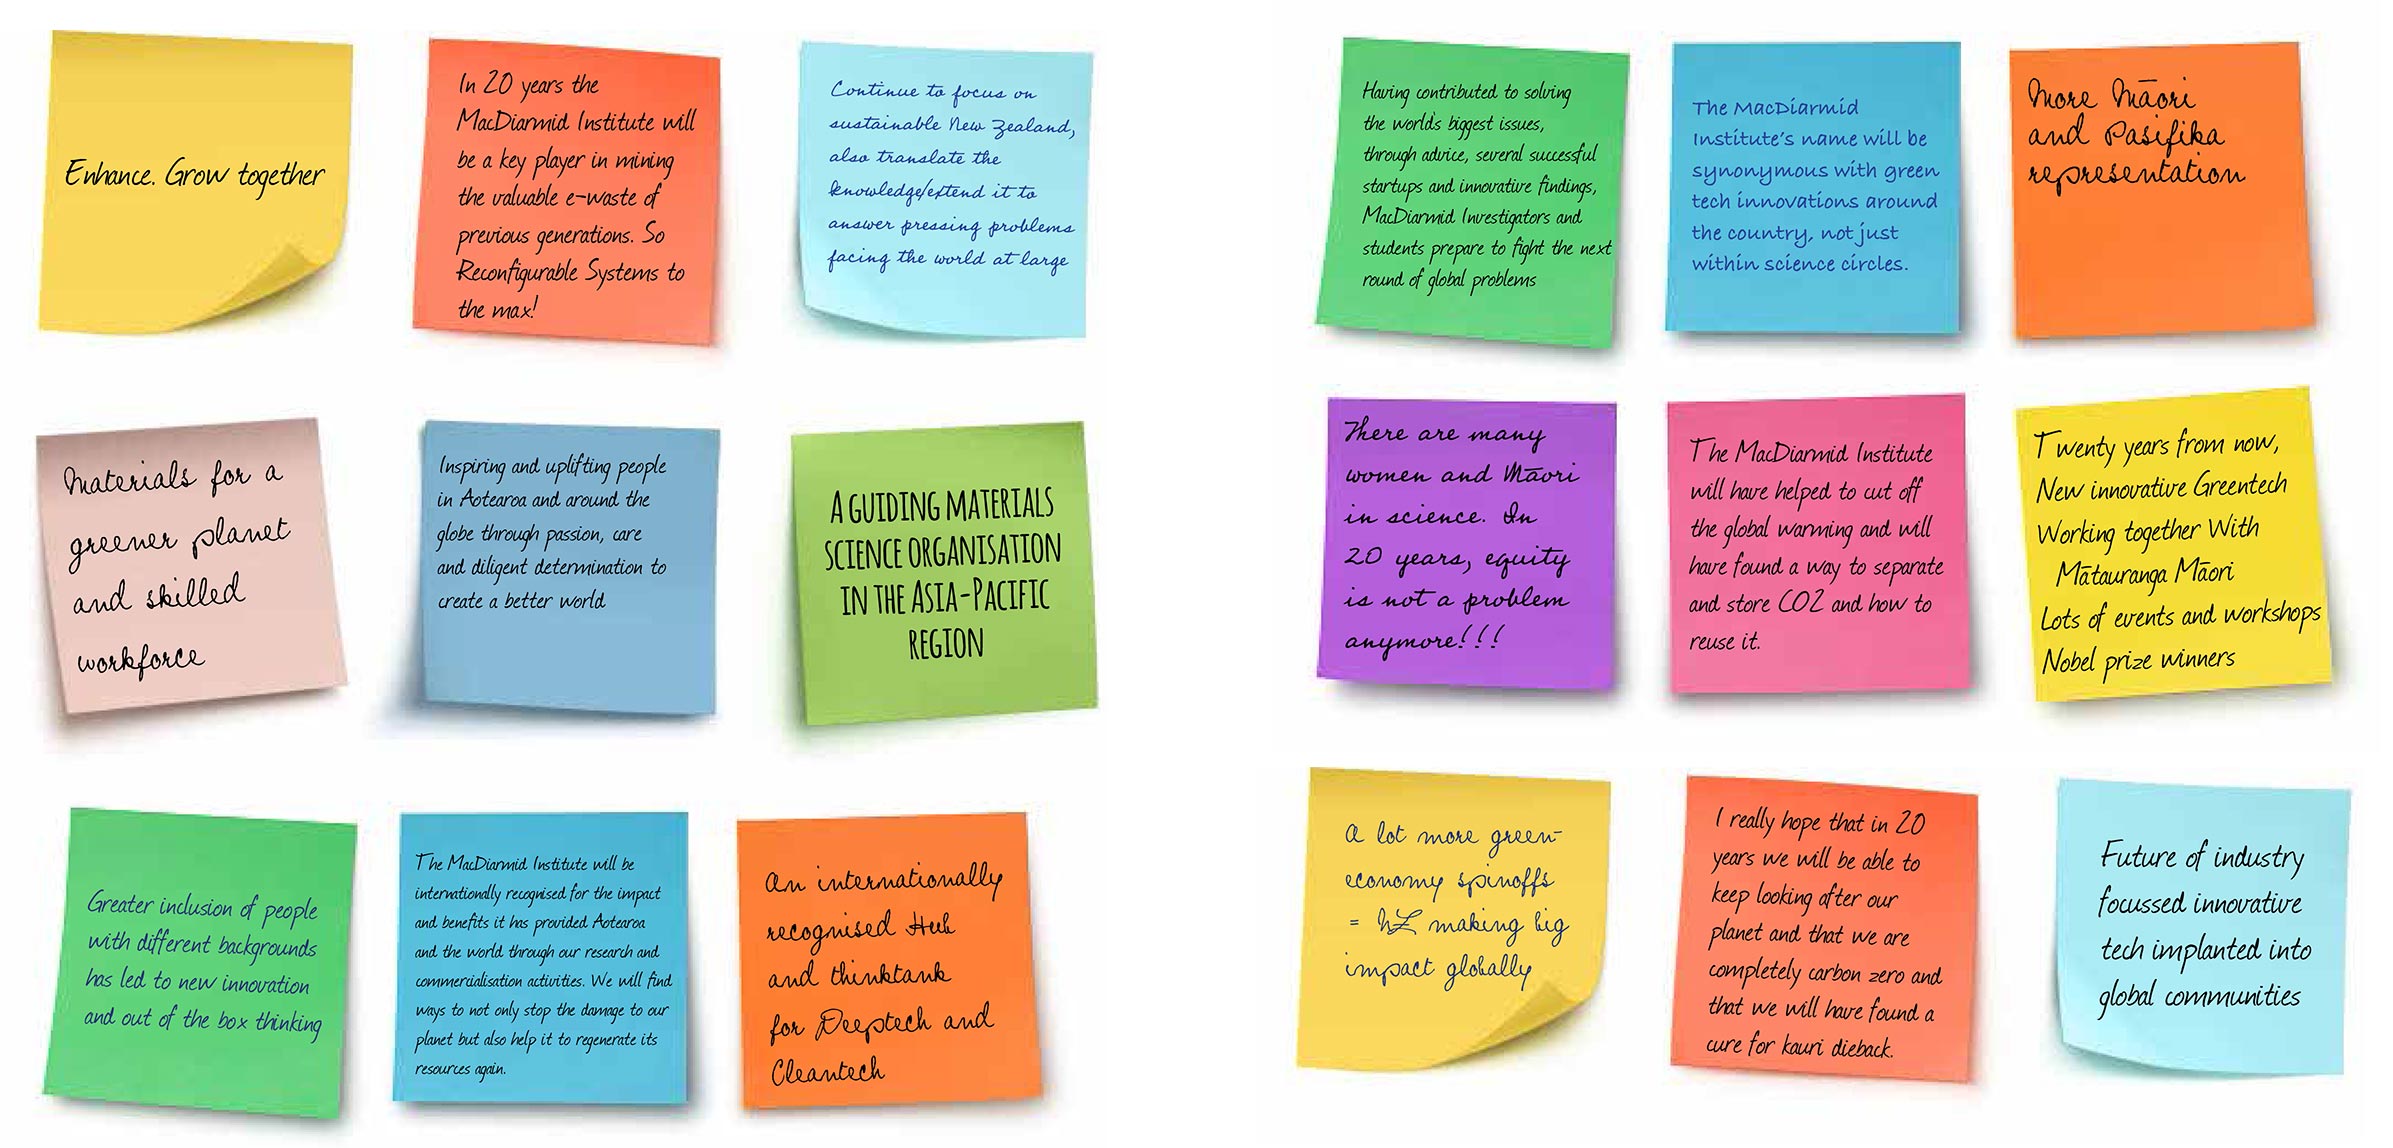 Enhance. Grow together
In 20 years the
MacDiarmid Institute will
be a key player in mining
the valuable e-waste of
previous generations. So
Reconfigurable Systems to
the max!
Continue to focus on
sustainable New Zealand,
also translate the
knowledge/extend it to
answer pressing problems
facing the world at large
Materials for a
greener planet
and skilled
workforce
Inspiring and uplifting people
in Aotearoa and around the
globe through passion, care
and diligent determination to
create a better world
A GUIDING MATERIALS
SCIENCE ORGANISATION
IN THE ASIA-PACIFIC
REGION
Greater inclusion of people
with different backgrounds
has led to new innovation
and out of the box thinking
The MacDiarmid Institute will be
internationally recognised for the impact
and benefits it has provided Aotearoa
and the world through our research and
commercialisation activities. We will find
ways to not only stop the damage to our
planet but also help it to regenerate its
resources again.
An internationally
recognised Hub
and thinktank
for Deeptech and
Cleantech
Having contributed to solving
the world's biggest issues,
through advice, several successful
startups and innovative findings,
MacDiarmid Investigators and
students prepare to fight the next
round of global problems
The MacDiarmid
Institute's name will be
synonymous with green
tech innovations around
the country, not just
within science circles.
More Māori
and Pasifika
representation
There are many
women and Māori
in science. In
20 years, equity
is not a problem
anymore!!!
The MacDiarmid Institute
will have helped to cut off
the global warming and will
have found a way to separate
and store CO2 and how to
reuse it.
Twenty years from now,
New innovative Greentech
Working together With
Mātauranga Māori
Lots of events and workshops
Nobel prize winners
A lot more green-
economy spinoffs
= NZ making big
impact globally
I really hope that in 20
years we will be able to
keep looking after our
planet and that we are
completely carbon zero and
that we will have found a
cure for kauri dieback.
Future of industry
focussed innovative
tech implanted into
global communities